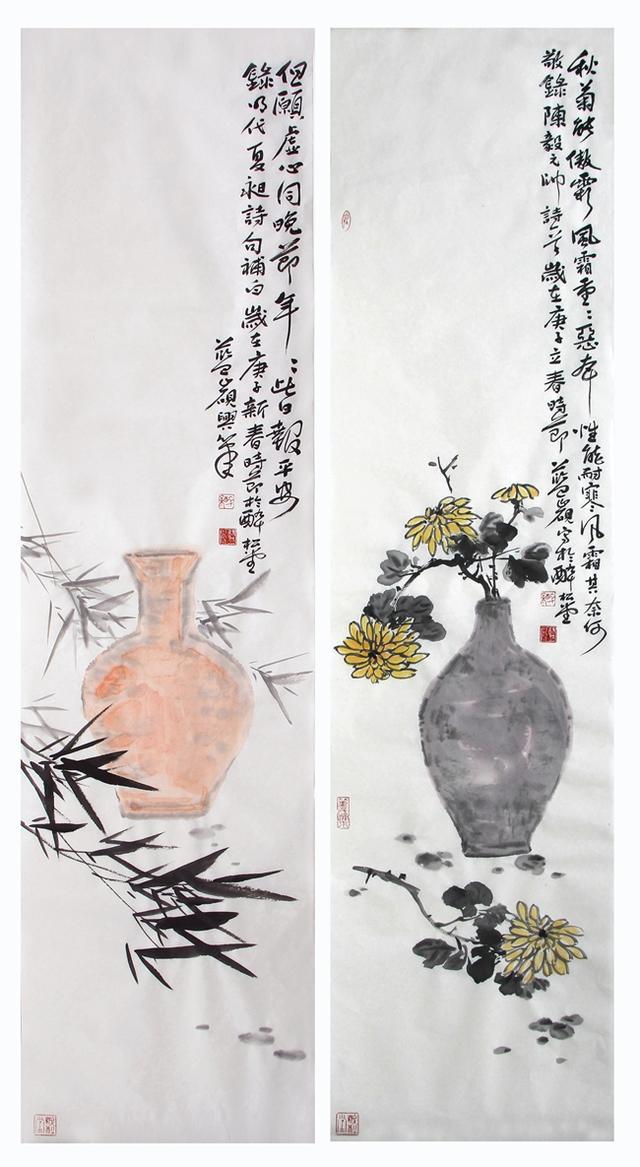 秋菊能傲霜風霜重〻惡本性能耐寒風霜其奈何
敬錄陳毅元帥詩歲在庚子立春時節藍峴寫於醉松堂
但願虛心同晚節年〻此日報平安
錄明代夏昶詩句補白歲在庚子新春時節於醉松堂
藍峴興筆